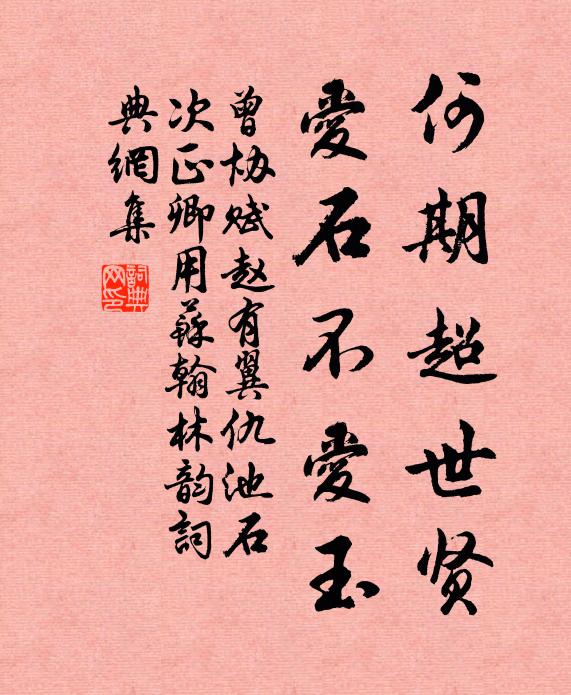 何期超世贤
愛石不愛玉
曾协赋赵有翼仇池石
次正卿用蘇翰林韵詞
典網集
詞典网印